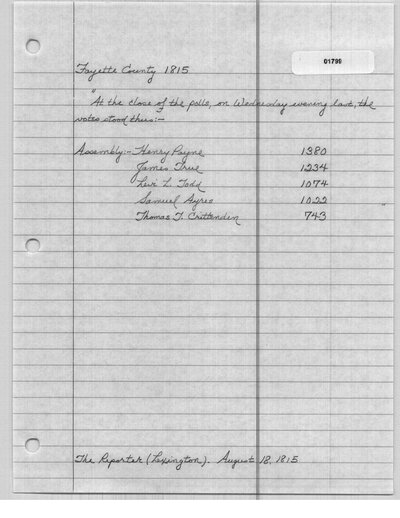 01799
Fayette County 1815
"At the close of the polls, on Wednesday evening last, the
votes stood thus:-
Assembly:- Henry Payne 1380
James True 1234
Levi L. Todd 1074
Samuel Ayres 1022 "
Thomas T. Crittenden 743
The Reporter (Lexington). August 18, 1815